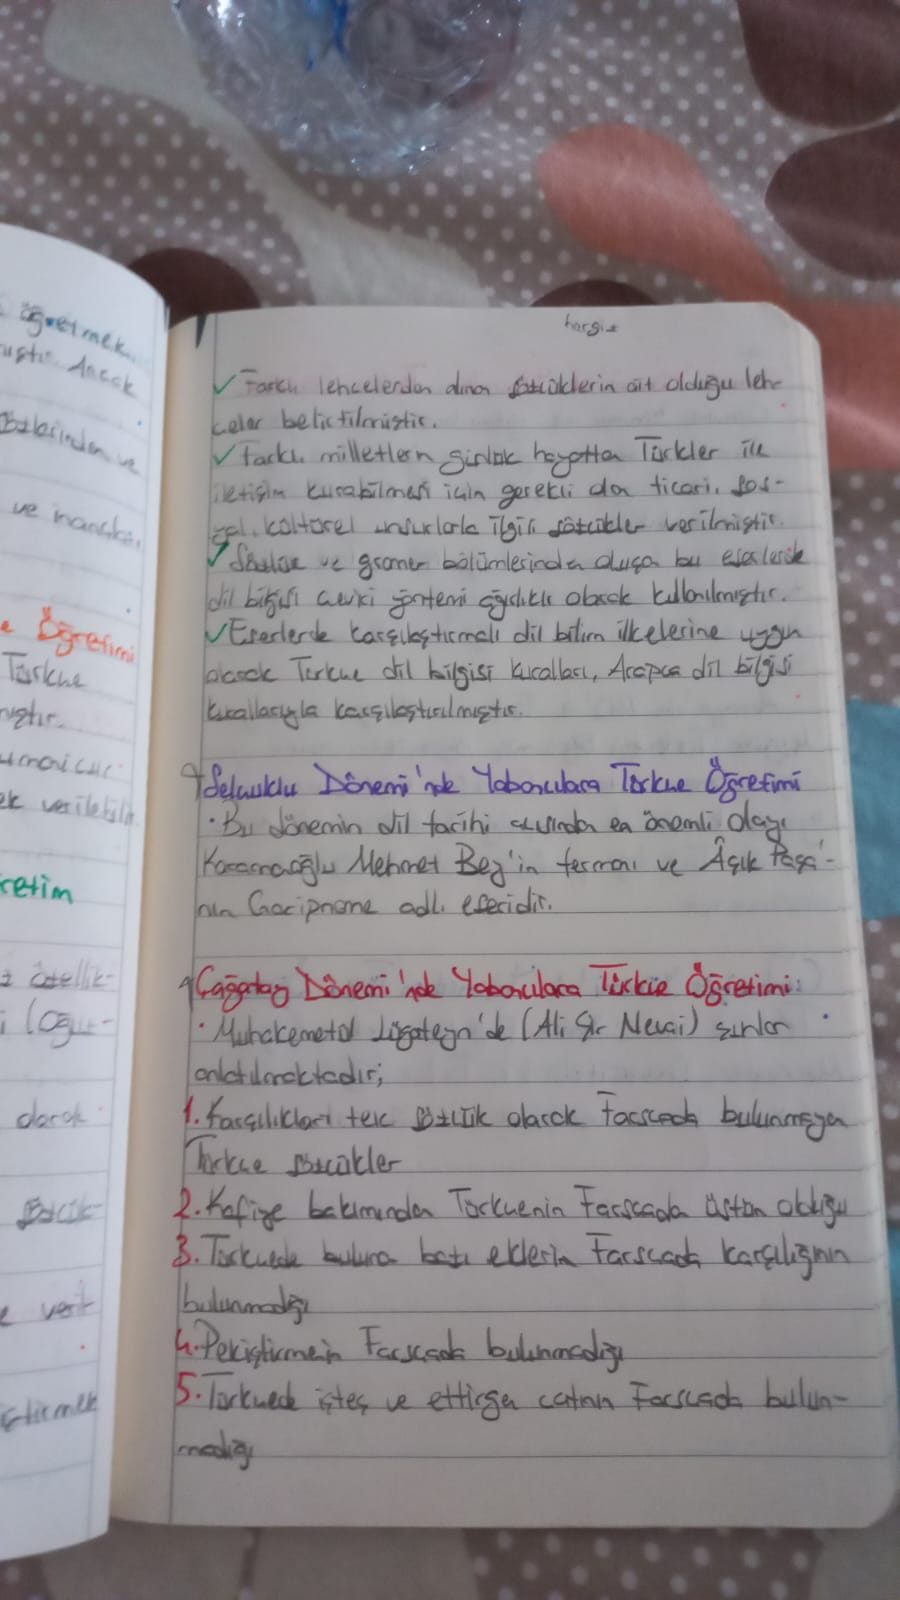 öğretmek
Ancak
ve
ve inançları
e Öğretimi
Türkçe
mıştır.
ek verilebilir.
retim
özellik-
i (Oğu-
olarak
sözcük-
e
ştirmek
✓ Farklı lehçelerden alınan sözcüklerin ait olduğu leh-
çeler belirtilmiştir.
✓ Farklı milletlerin günlük hayatta Türkler ile
iletişim kurabilmesi için gerekli olan ticari, sos-
yal, kültürel unsurlarla ilgili sözcükler verilmiştir.
✓ Sözlük ve gramer bölümlerinden oluşan bu eserlerde
dil bilgisi çeviri yöntemi ağırlıklı olarak kullanılmıştır.
✓ Eserlerde karşılaştırmalı dil bilim ilkelerine uygun
olarak Türkçe dil bilgisi kuralları, Arapça dil bilgisi
kurallarıyla karşılaştırılmıştır.
Selçuklu Dönemi'nde Yabancılara Türkçe Öğretimi
• Bu dönemin dil tarihi açısından en önemli olayı
Karamanoğlu Mehmet Bey'in fermanı ve Âşık Paşa'-
nın Garipname adlı eseridir.
Çağatay Dönemi'nde Yabancılara Türkçe Öğretimi:
• Muhakemetül Lügateyn'de (Ali Şir Nevai) şunlar
anlatılmaktadır;
1. Karşılıkları tek sözcük olarak Farsçada bulunmayan
Türkçe sözcükler
2. Kafiye bakımından Türkçenin Farsçadan üstün olduğu
3. Türkçede bulunan bazı eklerin Farsçada karşılığının
bulunmadığı
4. Pekiştirmenin Farsçada bulunmadığı
5. Türkçede işteş ve ettirgen çatının Farsçada bulun-
madığı